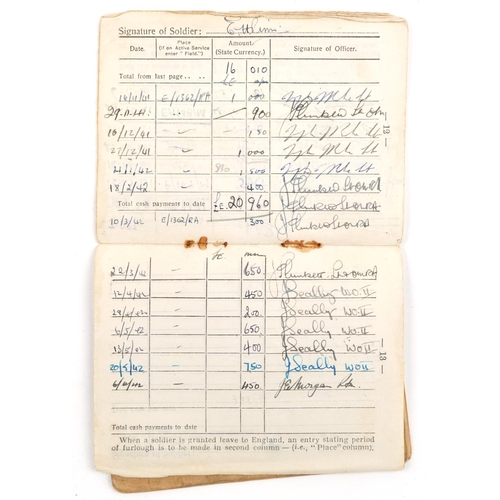 Signature of Soldier:
Date. Place (If on Active Service enter "Field.") Amount (State Currency.) Signature of Officer.
Total from last page .. .. 16 010
£E
14/11/41 E/1362/RA 1 000
29.11.41 — 900
16/12/41 — 150
27/12/41 — 1 000
2/1/42 — 1 500
18/2/42 — 400
Total cash payments to date £E. 20 960
10/3/42 E/1362/RA 300
19
£E.
29/3/42 — 650
12/4/42 — 450 J Seally WO.II
29/4/42 — 200 J Seally WO.II
6/5/42 — 650 J Seally WO.II
13/5/42 — 400 J Seally WO.II
20/5/42 — 750 J Seally WO.II
6/6/42 — 450 Morgan
18
Total cash payments to date
When a soldier is granted leave to England, an entry stating period
of furlough is to be made in second column — (i.e., "Place" column).